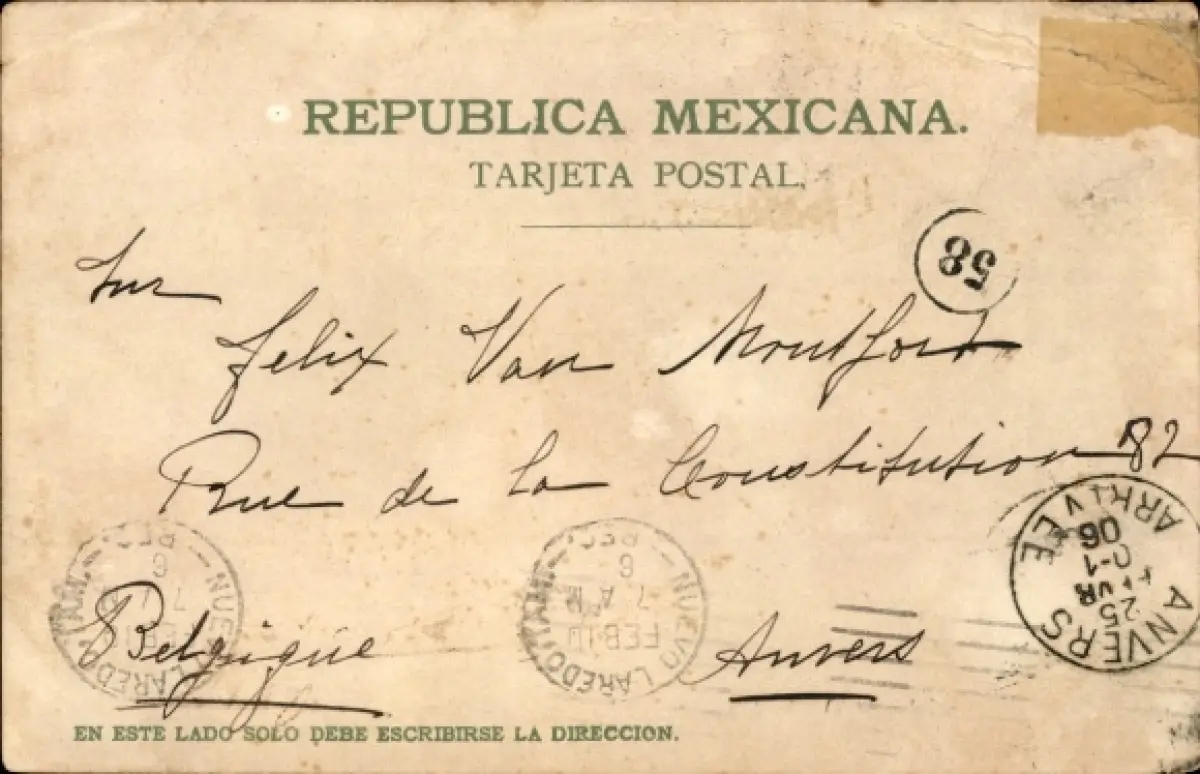 REPUBLICA MEXICANA.
TARJETA POSTAL.
58
Felix Van Montfort
Rue de la Constitution 82
Belgique Anvers
NUEVO LAREDO, TAM.
FEB 10
7 AM
6
REC
NUEVO LAREDO, TAM.
FEB
7
6
REC
ANVERS
25
VR
06
ARRIVEE
EN ESTE LADO SOLO DEBE ESCRIBIRSE LA DIRECCION.